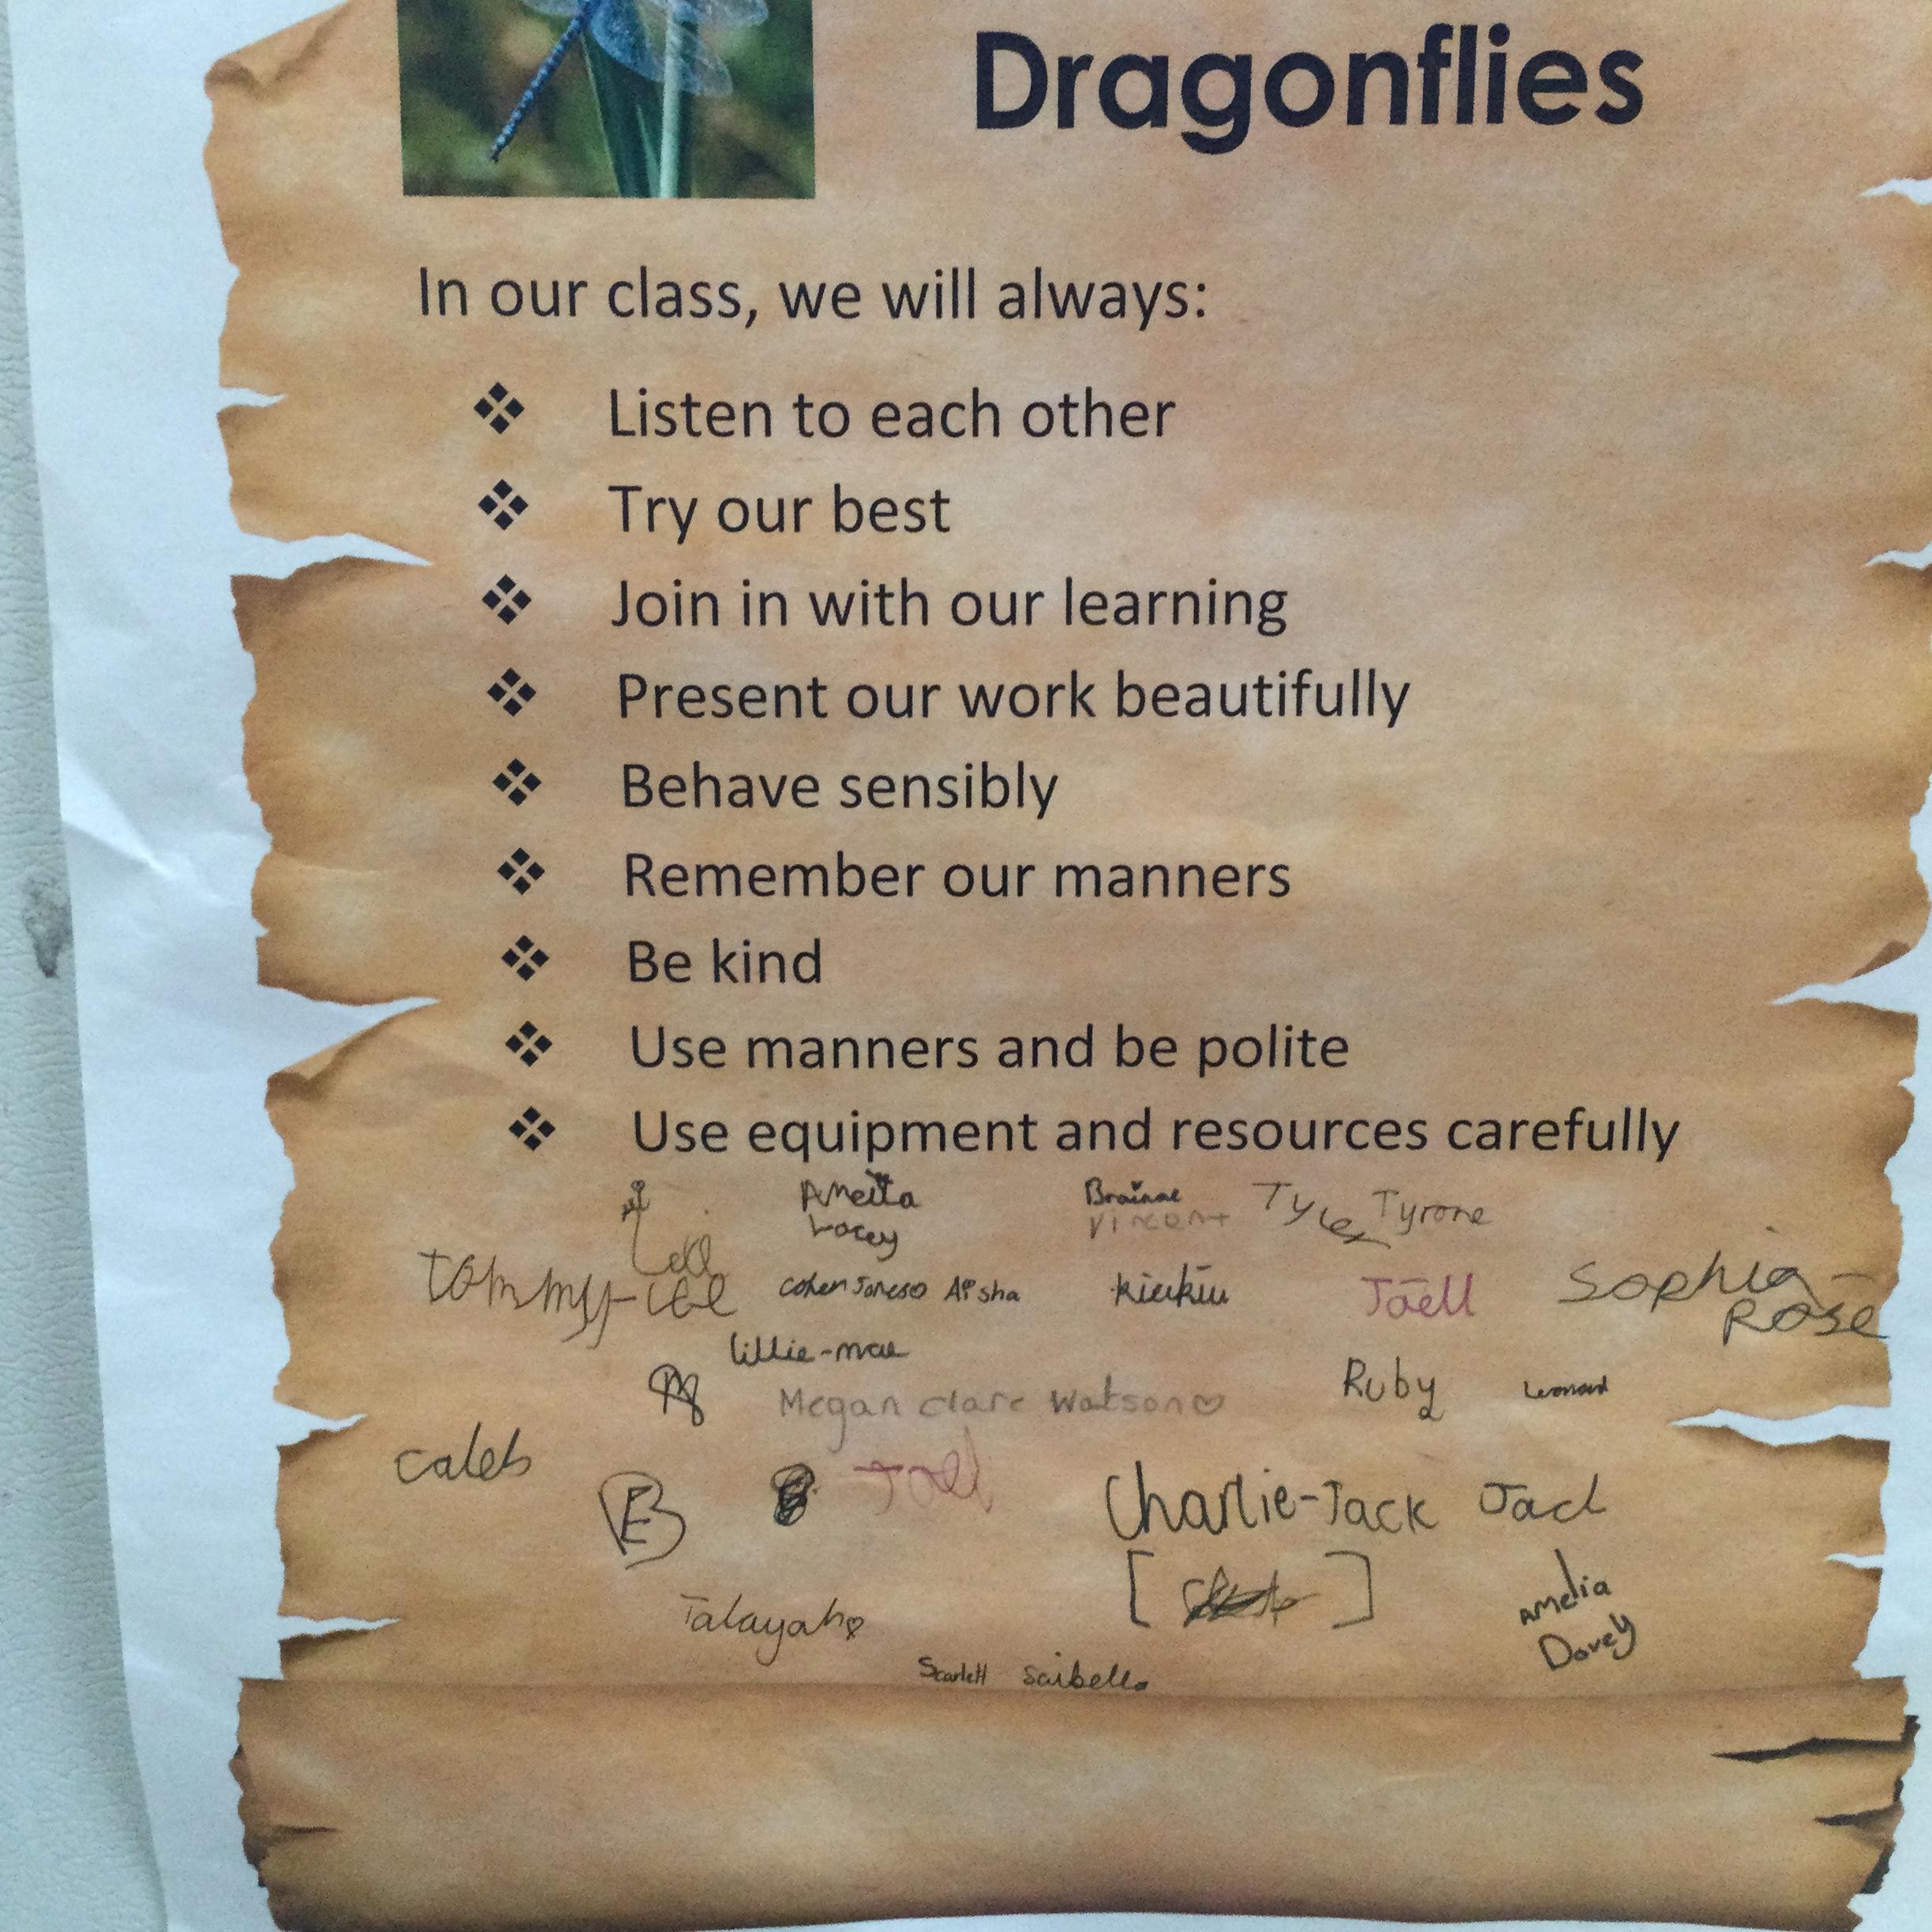 Dragonflies
In our class, we will always:
❖ Listen to each other
❖ Try our best
❖ Join in with our learning
❖ Present our work beautifully
❖ Behave sensibly
❖ Remember our manners
❖ Be kind
❖ Use manners and be polite
❖ Use equipment and resources carefully
Tyler Tyrone
Lacey Vincent
tommy-lee Aisha Joell Sophia-
Rose
lillie-mae
Megan clare Watson Ruby Leonard
caleb Joel Charlie-Jack
Talayah Amelia
Dovey
Scarlett